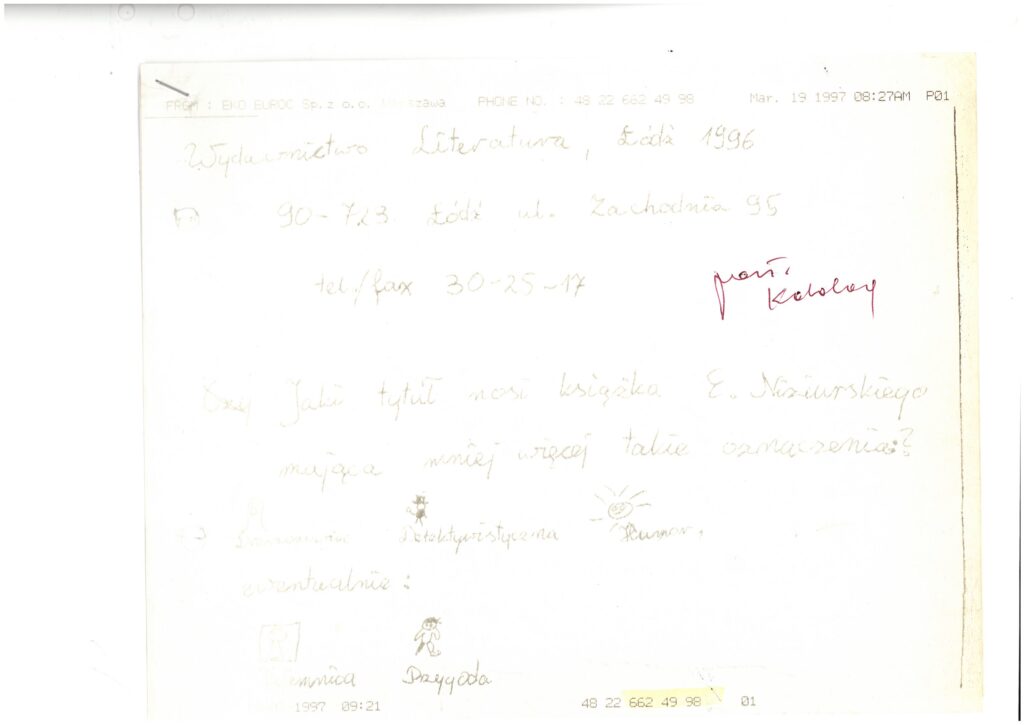 FROM : EKO EUROC Sp.z o.o. Warszawa PHONE NO. : 48 22 662 49 98 Mar. 19 1997 08:27AM P01
Wydawnictwo Literatura, Łódź 1996
90-723 Łódź ul. Zachodnia 95
tel./fax 30-25-17
Jaki tytuł nosi książka E. Niziurskiego
mająca mniej więcej takie oznaczenia?
Detektywistyczna Humor,
ewentualnie:
Przygoda
1997 09:21 48 22 662 49 98 01